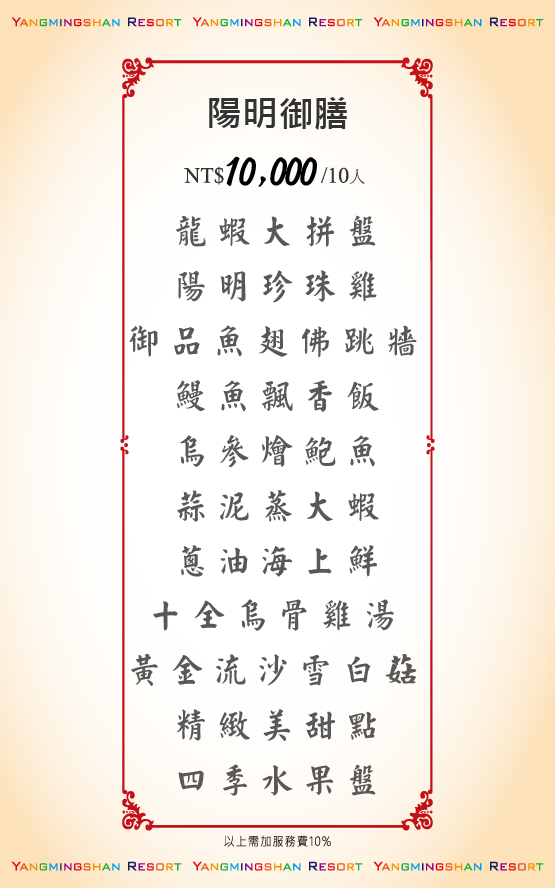 YANGMINGSHAN RESORT YANGMINGSHAN RESORT YANGMINGSHAN RESORT
陽明御膳
NT$10,000/10人
龍蝦大拼盤
陽明珍珠雞
御品魚翅佛跳牆
鰻魚飄香飯
烏參燴鮑魚
蒜泥蒸大蝦
蔥油海上鮮
十全烏骨雞湯
黃金流沙雪白菇
精緻美甜點
四季水果盤
以上需加服務費10%
YANGMINGSHAN RESORT YANGMINGSHAN RESORT YANGMINGSHAN RESORT